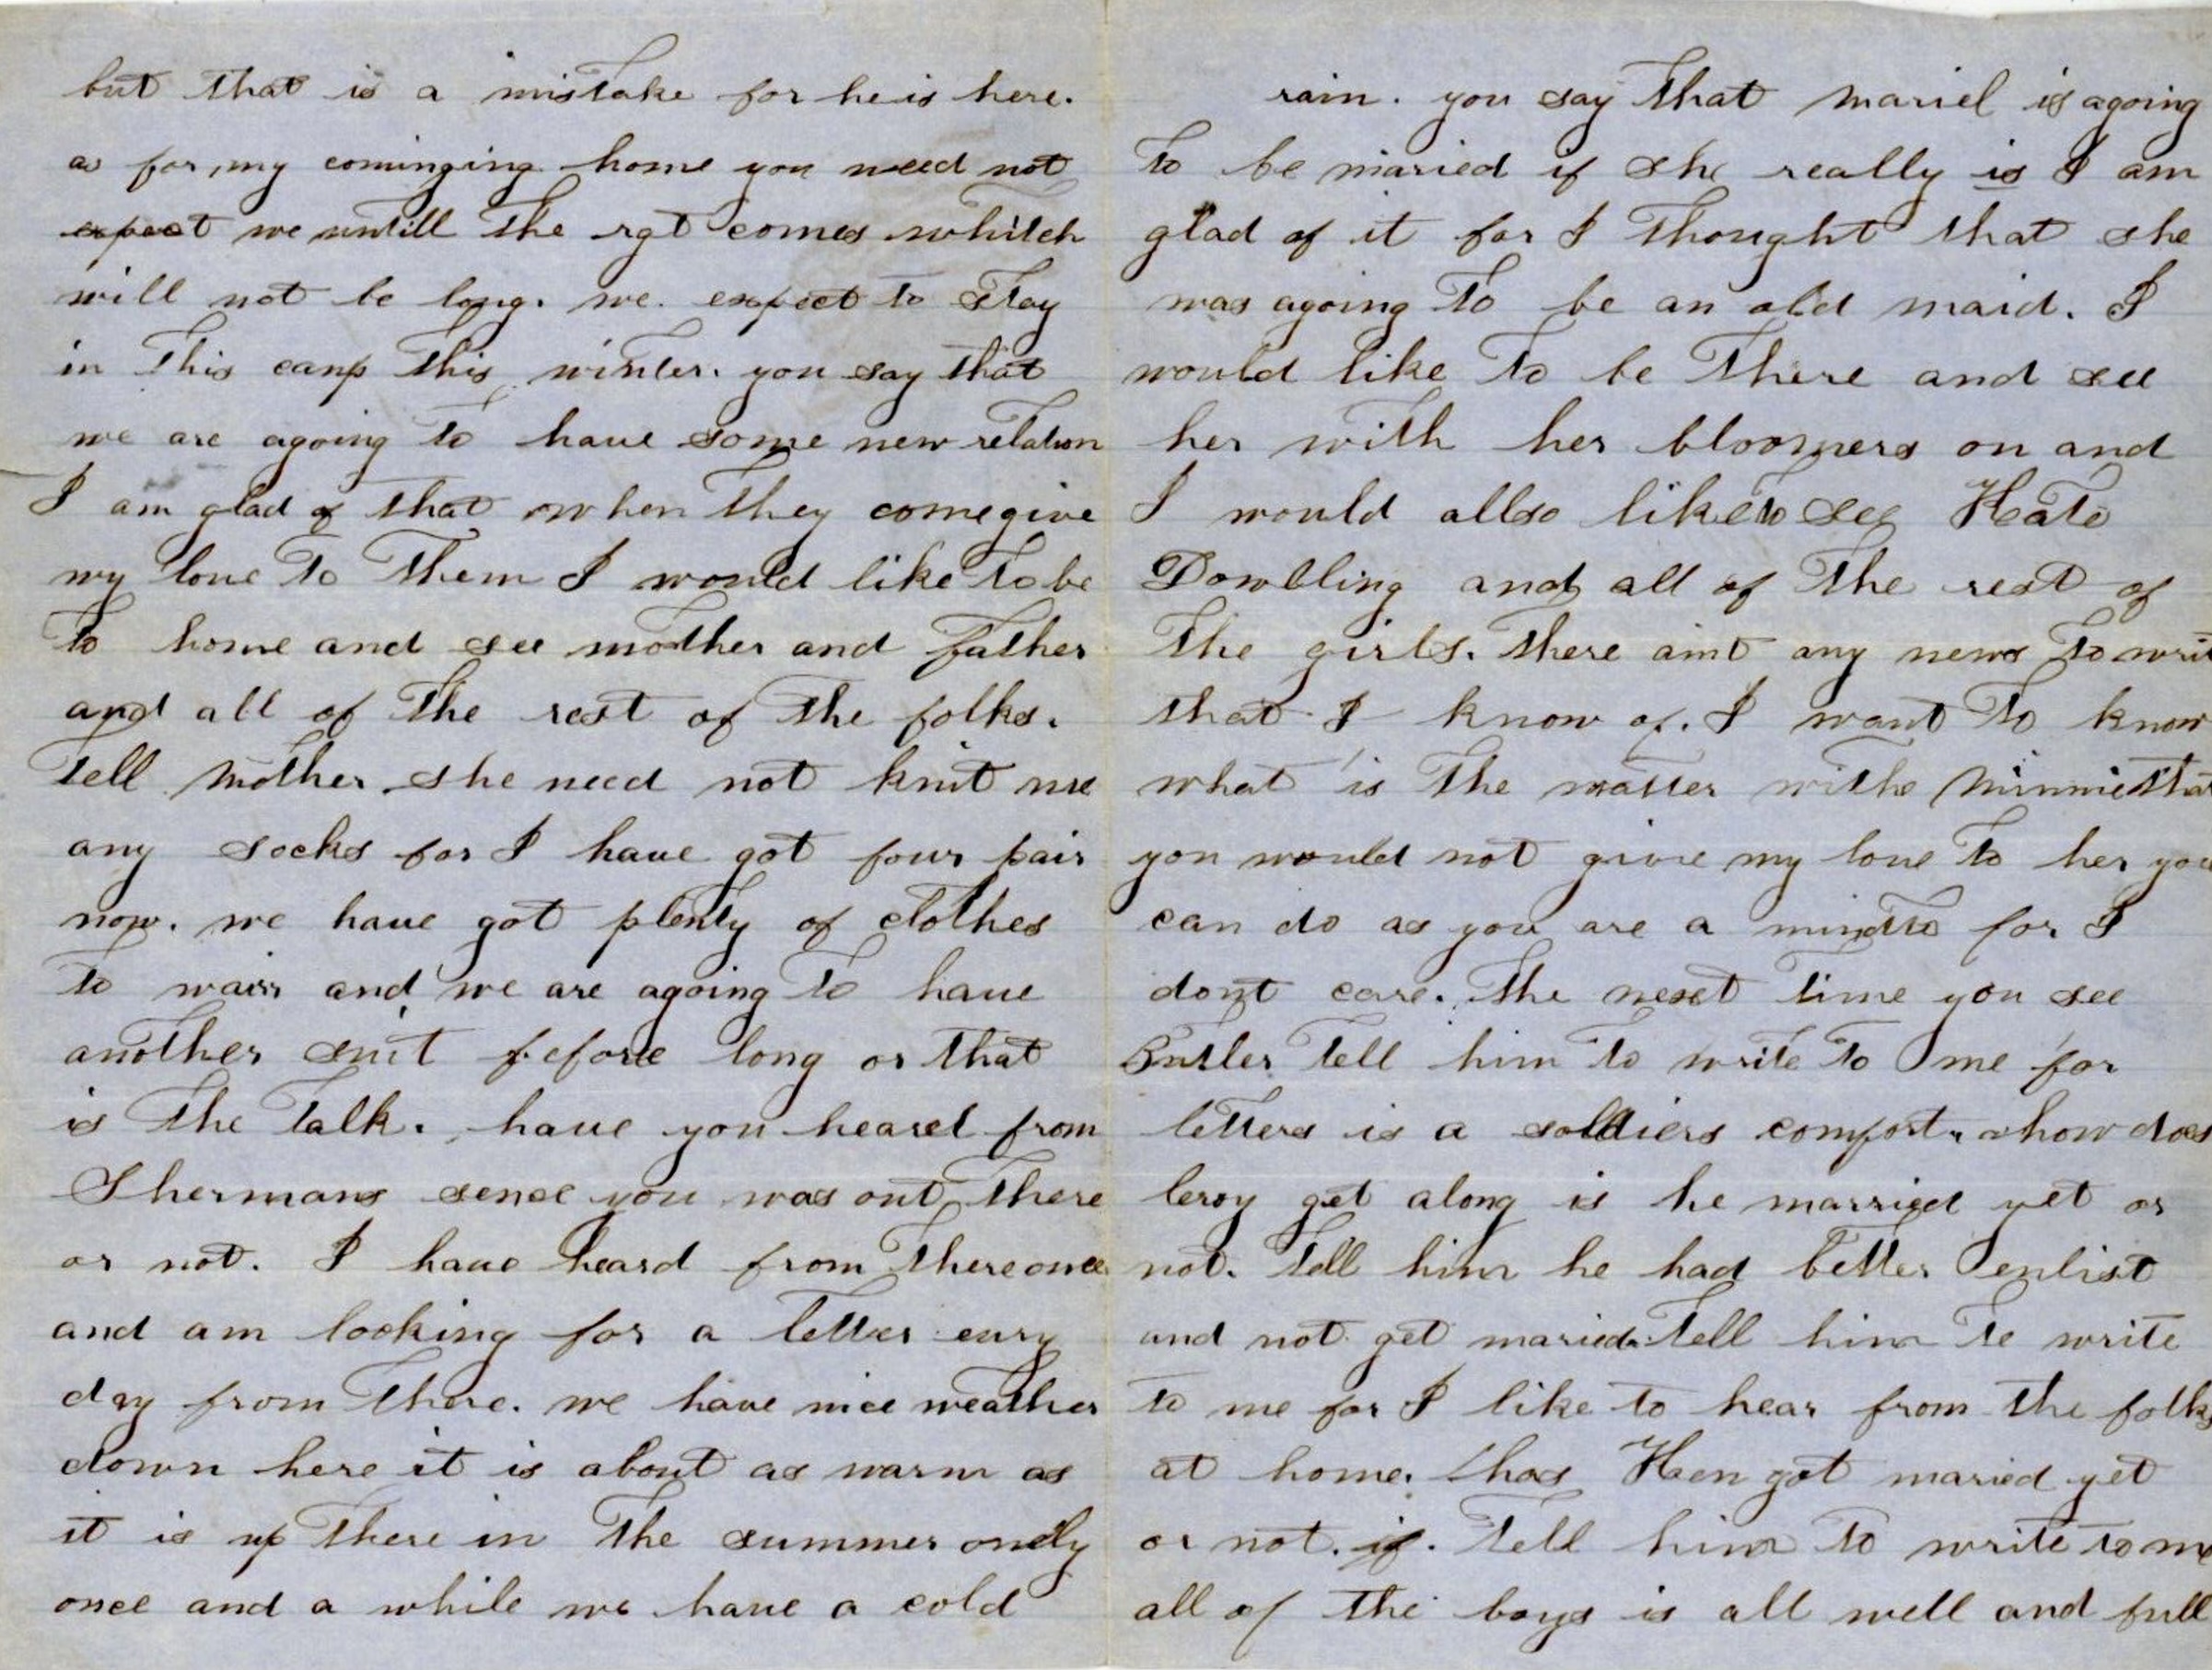 but that is a mistake for he is here.
as for my cominging home you need not
expect me untill the rgt comes whitch
will not be long. we expect to stay
in this camp this winter. you say that
we are agoing to have some new relation
I am glad of that when they come give
my love to them I would like to be
to home and see mother and father
and all of the rest of the folks.
tell mother she need not knit me
any socks for I have got four pair
now. we have got plenty of clothes
to wair and we are agoing to have
another suit before long or that
is the talk. have you heard from
Shermans sence you was out there
or not. I have heard from there once
and am looking for a letter evry
day from there. we have nice weather
down here it is about as warm as
it is up there in the summer ondly
once and a while we have a cold
rain. you say that mariel is agoing
to be maried if she really is I am
glad of it for I thought that she
was agoing to be an old maid. I
would like to be there and see
her with her bloomers on and
I would allso like to see Kate
Dowbling and all of the rest of
the girls. there aint any news to writ
that I know of. I want to know
what is the matter withe Minnie that
you would not give my love to her you
can do as you are a mindto for I
dont care. the next time you see
Butler tell him to write to me for
letters is a soldiers comfort. how does
leroy get along is he married yet or
not. tell him he had better enlist
and not get maried. tell him to write
to me for I like to hear from the folks
at home. has Hen got maried yet
or not. if. tell him to write to me
all of the boys is all well and full